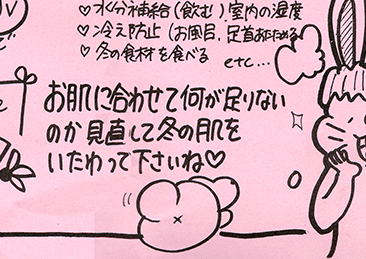 ♡水分補給(飲む)室内の湿度
♡冷え防止(お風呂、足首あたためる
♡冬の食材を食べる
etc...
お肌に合わせて何が足りない
のか見直して冬の肌を
いたわって下さいね♡